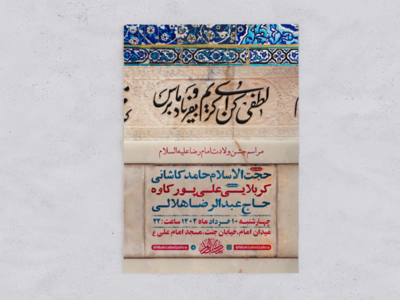 لطفی کن ای کریم بفریاد ما برس
مراسم جشن ولادت امام رضا علیه السلام
حجت الاسلام حامد کاشانی
کربلایی علی پور کاوه
حاج عبدالرضا هلالی
چهارشنبه ۱۰ خرداد ماه ۱۴۰۲ ساعت: ۲۲
میدان امام، خیابان جنت، مسجد امام علی ع